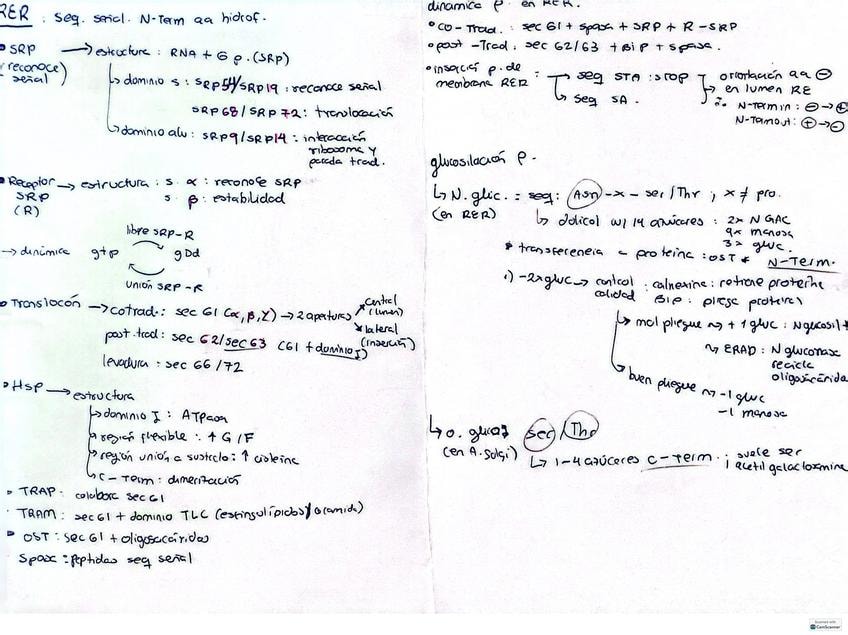 RER: seq. señal. N-Term aa hidrof.
• SRP → estructura: RNA + 6 p. (SRP)
(reconoce señal)
→ dominio s: SRP54/SRP19: reconoce señal
SRP68/SRP72: translocación
→ dominio alu: SRP9/SRP14: interacción
ribosoma y
parada trad.
• Receptor → estructura: s. α: reconoce SRP
SRP s. β: estabilidad
(R)
libre SRP-R
→ dinámica gtp gDd
unión SRP-R
• Translocón → cotrad: sec 61 (α, β, γ) → 2 aperturas
central (lumen)
lateral (inserción)
post trad: sec 62/sec 63 (61 + dominio J)
levadura: sec 66/72
• Hsp → estructura
→ dominio J: ATPasa
→ región flexible: ↑ G/F
→ región unión a sustrato: ↑ cisteina
→ C-Term: dimerización
• TRAP: colabora sec 61
TRAM: sec 61 + dominio TLC (esfingolípidos/ceramida)
• OST: sec 61 + oligosacáridos
Spasa: Peptidasa seq señal
dinamica p. en RER.
• co-Trad.: sec 61 + spasa + SRP + R-SRP
• post-Trad: sec 62/63 + BiP + spasa.
• inserción p. de
membrana RER: → seq STA: stop
→ seq SA.
orientación aa ⊖
en lumen RE
∴ N-Term in: ⊖→⊕
N-Term out: ⊕→⊖
glucosilación p.
↳ N. glic. = seq: Asn-x-ser/Thr; x ≠ pro.
(en RER)
↳ dolicol w/ 14 azúcares: 2x NGAC
9x manosa
3x gluc.
* transferencia a proteína: OST * N-Term.
1) -2xgluc → control calidad
calnexina: retiene proteína
BiP: pliega proteínas
→ mal pliegue ~ + 1 gluc: Nglucosil t
~ ERAD: N gluconasa
recicla
oligosacárido
→ buen pliegue ~ -1 gluc
-1 manosa
↳ o. gluc. ser/Thr
(en A. Golgi)
↳ 1-4 azúcares C-Term; suele ser
1 acetil galactosamina
Scanned with
CamScanner